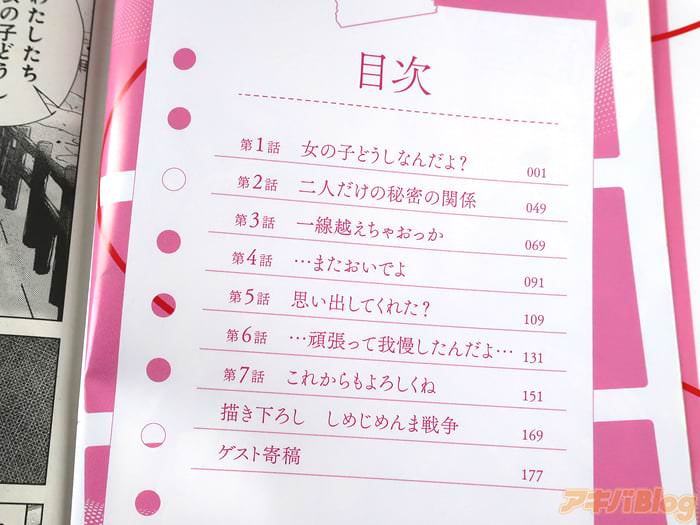 わたしたち
女の子どう
目次
第1話 女の子どうしなんだよ? 001
第2話 二人だけの秘密の関係 049
第3話 一線越えちゃおっか 069
第4話 …またおいでよ 091
第5話 思い出してくれた? 109
第6話 …頑張って我慢したんだよ… 131
第7話 これからもよろしくね 151
描き下ろし しめじめんま戦争 169
ゲスト寄稿 177
アキバBlog